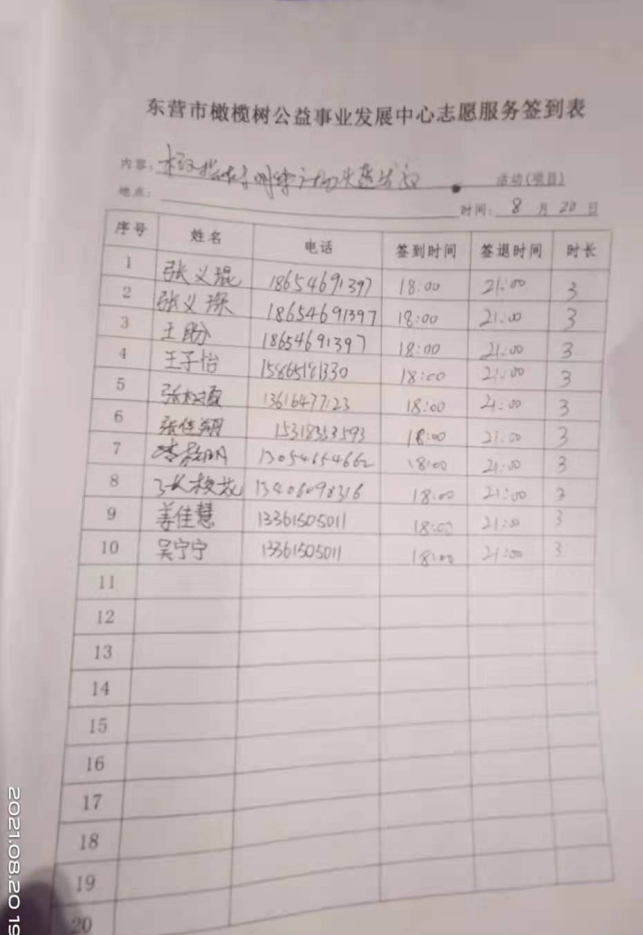 东营市橄榄树公益事业发展中心志愿服务签到表
内容: 活动(项目)
地点: 时间: 8 月 20 日
序号 姓名 电话 签到时间 签退时间 时长
1 张义琨 18654691397 18:00 21:00 3
2 张义琛 18654691397 18:00 21:00 3
3 王盼 18654691397 18:00 21:00 3
4 王子怡 15865181330 18:00 21:00 3
5 13616477123 18:00 21:00 3
6 张佳翔 15318353593 18:00 21:00 3
7 13054654662 18:00 21:00 3
8 13406098316 18:00 21:00 3
9 姜佳慧 13361505011 18:00 21:00 3
10 吴宁宁 13361505011 18:00 21:00 3
11
12
13
14
15
16
17
18
19
20
2021.08.20 19